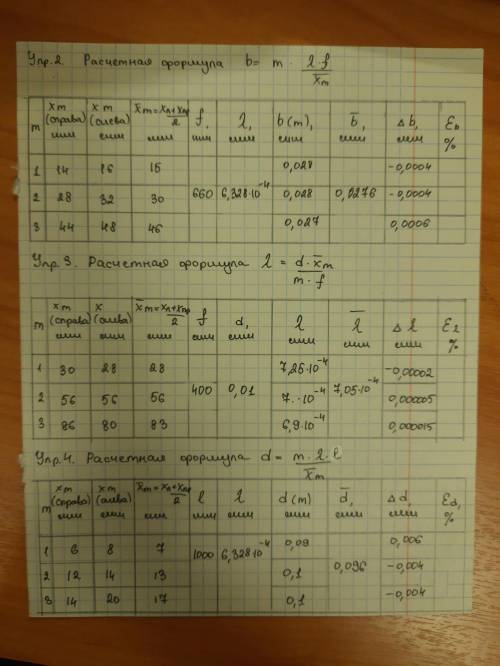 Упр.2. Расчетная формула b = m · λ·f / x̅m
m | xm (справа) мм | xm (слева) мм | x̅m = xл+xпр / 2 мм | f, мм | λ, мм | b(m), мм | b̅, мм | Δb, мм | Eb %
1 | 14 | 16 | 15 | 0,028 | -0,0004
2 | 28 | 32 | 30 | 660 | 6,328·10⁻⁴ | 0,028 | 0,0276 | -0,0004
3 | 44 | 48 | 46 | 0,027 | 0,0006
Упр.3. Расчетная формула λ = d·x̅m / m·f
m | xm (справа) мм | x (слева) мм | x̅m = xл+xпр / 2 мм | f мм | d, мм | λ мм | λ̅ мм | Δλ мм | Eλ %
1 | 30 | 28 | 28 | 7,25·10⁻⁴ | -0,00002
2 | 56 | 56 | 56 | 400 | 0,01 | 7·10⁻⁴ | 7,05·10⁻⁴ | 0,000005
3 | 86 | 80 | 83 | 6,9·10⁻⁴ | 0,000015
Упр.4. Расчетная формула d = m·λ·l / x̅m
m | xm (справа) мм | xm (слева) мм | x̅m = xл+xпр / 2 мм | l мм | λ мм | d(m) мм | d̅, мм | Δd, мм | Ed, %
1 | 6 | 8 | 7 | 1000 | 6,328·10⁻⁴ | 0,09 | 0,006
2 | 12 | 14 | 13 | 0,1 | 0,096 | -0,004
3 | 14 | 20 | 17 | 0,1 | -0,004